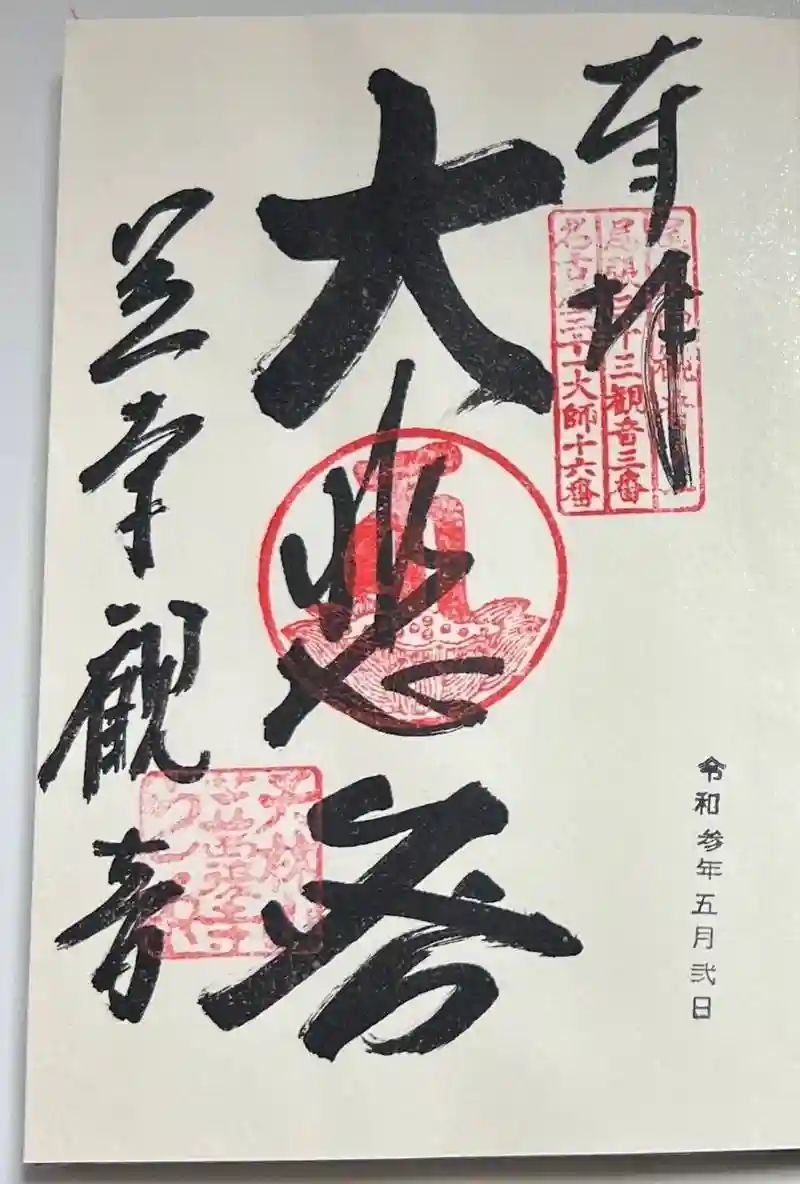 奉拝
尾張三十三観音三番
名古屋二十一大師十六番
令和参年五月弐日
大悲閣
笠寺觀音